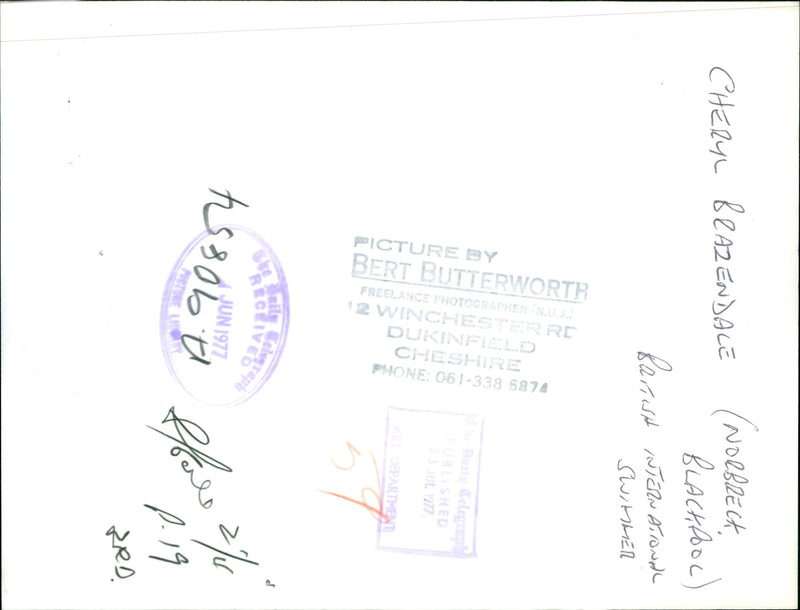 CHERYL BRAZENDALE (NORBRECK, BLACKPOOL)
BRITISH INTERNATIONAL SWIMMER
PICTURE BY
BERT BUTTERWORTH
FREELANCE PHOTOGRAPHER (N.U.J.)
12 WINCHESTER RD
DUKINFIELD
CHESHIRE
PHONE: 061-338 6874
The Daily Telegraph
RECEIVED
JUN 1977
PICTURE LIBRARY
The Daily Telegraph
PUBLISHED
13 JUL 1977
ART DEPARTMENT
p.19